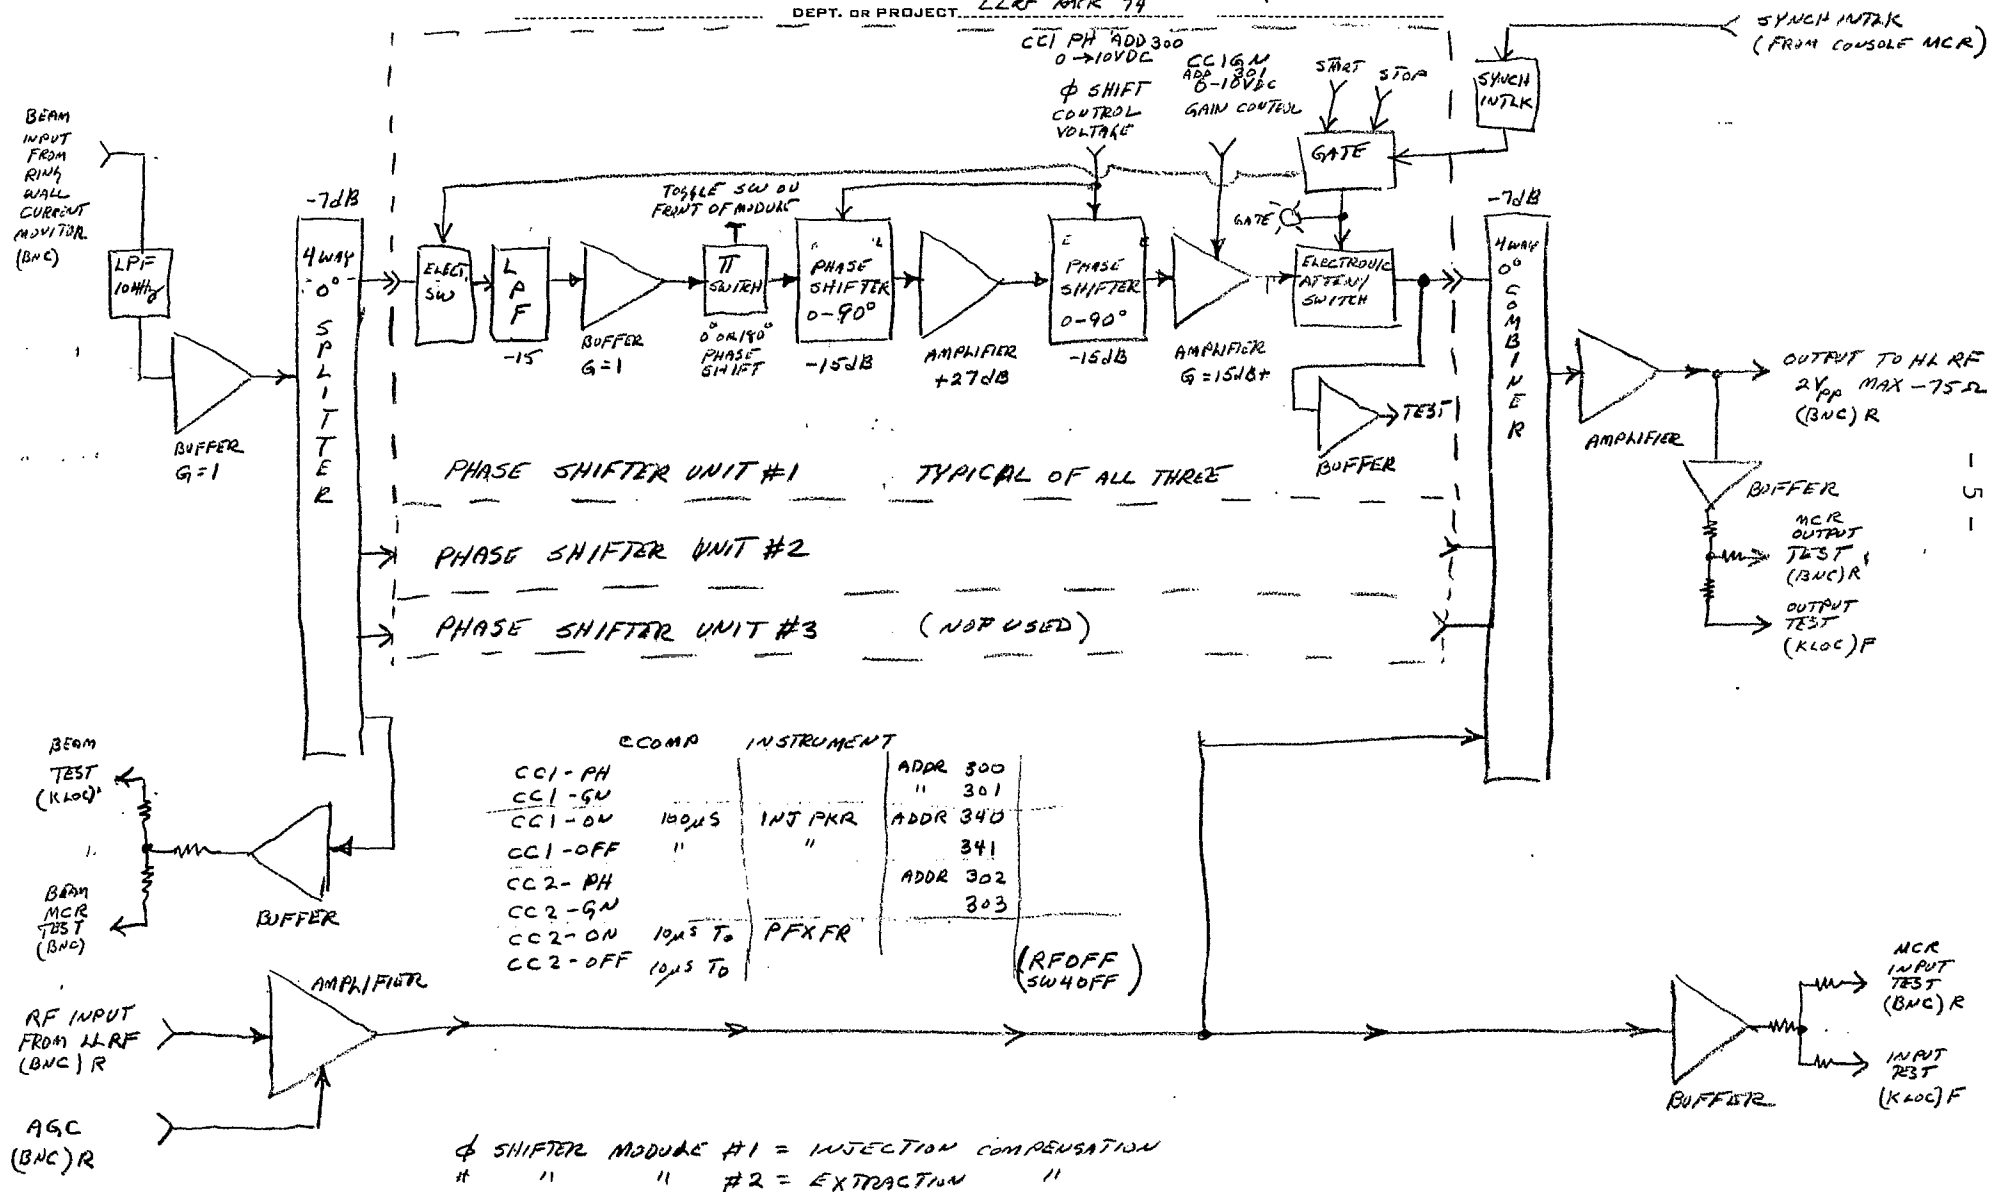 DEPT. OR PROJECT LLRF RACK 74
SYNCH INTLK
(FROM CONSOLE MCR)
CC1 PH ADD 300
0→10VDC
φ SHIFT
CONTROL
VOLTAGE
CC1GN
ADD 301
0-10VDC
GAIN CONTROL
START
STOP
SYNCH
INTLK
GATE
BEAM
INPUT
FROM
RING
WALL
CURRENT
MONITOR
(BNC)
LPF
10MHz
BUFFER
G=1
-7dB
4 WAY
0°
SPLITTER
ELECT.
SW
LPF
-15
BUFFER
G=1
TOGGLE SW ON
FRONT OF MODULE
π
SWITCH
0° OR 180°
PHASE
SHIFT
" "
PHASE
SHIFTER
0-90°
-15dB
AMPLIFIER
+27dB
PHASE
SHIFTER
0-90°
-15dB
AMPLIFIER
G=15dB+
GATE
ELECTRONIC
ATTEN/
SWITCH
TEST
BUFFER
-7dB
4 WAY
0°
COMBINER
AMPLIFIER
OUTPUT TO HL RF
2Vpp MAX -75Ω
(BNC) R
BUFFER
MCR
OUTPUT
TEST
(BNC) R
OUTPUT
TEST
(KLOC) F
- 5 -
PHASE SHIFTER UNIT #1 TYPICAL OF ALL THREE
PHASE SHIFTER UNIT #2
PHASE SHIFTER UNIT #3 (NOT USED)
BEAM
TEST
(KLOC)
BEAM
MCR
TEST
(BNC)
BUFFER
CCOMP INSTRUMENT
CC1-PH ADDR 300
CC1-GN " 301
CC1-ON 100μS INJ PKR ADDR 340
CC1-OFF " " 341
CC2-PH ADDR 302
CC2-GN 303
CC2-ON 10μS T0 PFXFR
CC2-OFF 10μS T0
(RFOFF
SW4OFF)
RF INPUT
FROM LLRF
(BNC) R
AMPLIFIER
AGC
(BNC) R
BUFFER
MCR
INPUT
TEST
(BNC) R
INPUT
TEST
(KLOC) F
φ SHIFTER MODULE #1 = INJECTION COMPENSATION
" " " #2 = EXTRACTION "